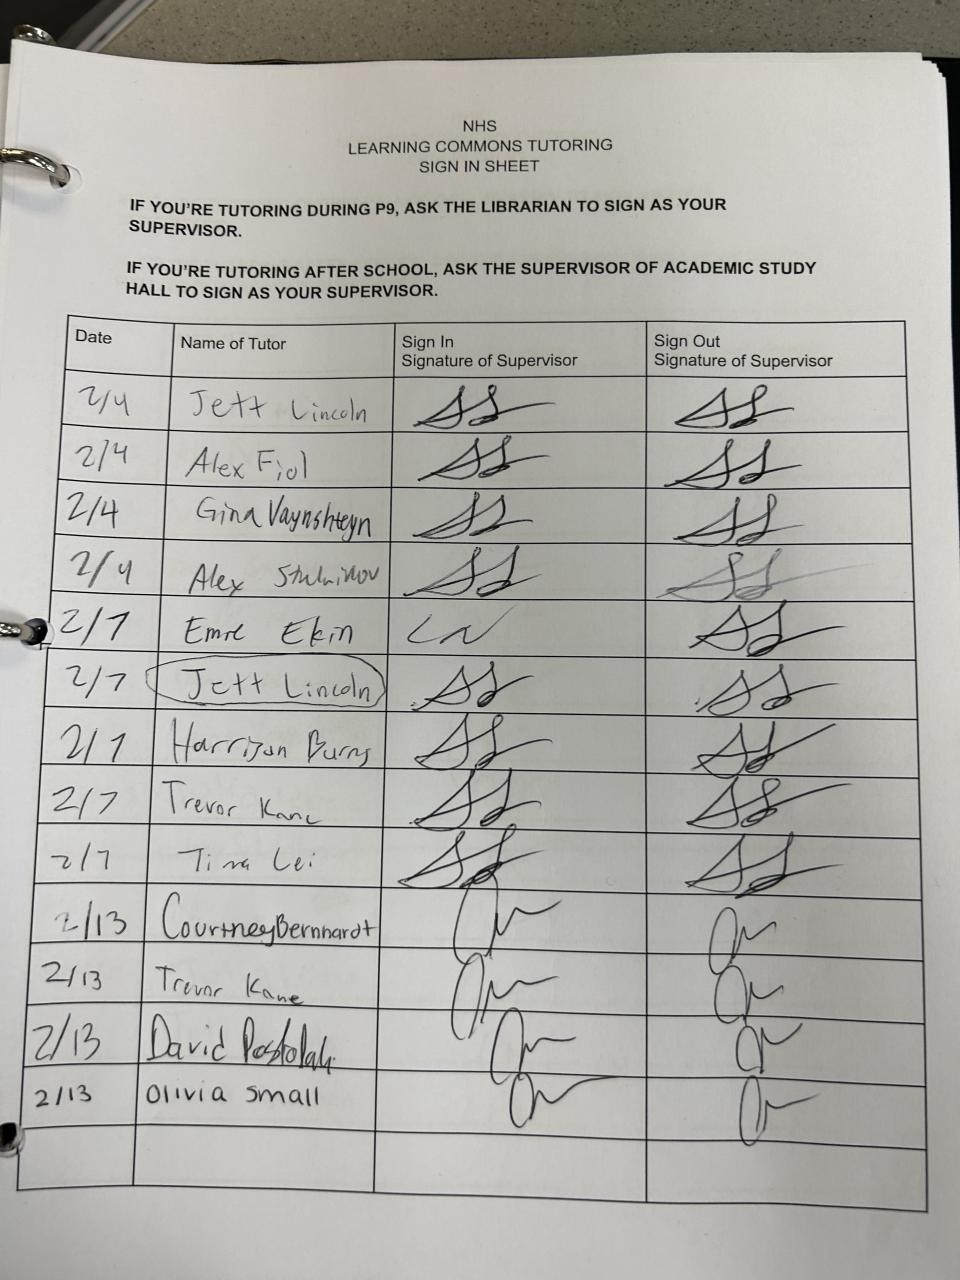 NHS
LEARNING COMMONS TUTORING
SIGN IN SHEET
IF YOU'RE TUTORING DURING P9, ASK THE LIBRARIAN TO SIGN AS YOUR
SUPERVISOR.
IF YOU'RE TUTORING AFTER SCHOOL, ASK THE SUPERVISOR OF ACADEMIC STUDY
HALL TO SIGN AS YOUR SUPERVISOR.
Date Name of Tutor Sign In Signature of Supervisor Sign Out Signature of Supervisor
2/4 Jett Lincoln
2/4 Alex Fiol
2/4 Gina Vaynshteyn
2/4 Alex
2/7 Emre Ekin
2/7 Jett Lincoln
2/7 Harrison Burns
2/7 Trevor Kane
2/7 Tina Lei
2/13 Courtney Bernhardt
2/13 Trevor Kane
2/13 David
2/13 Olivia Small